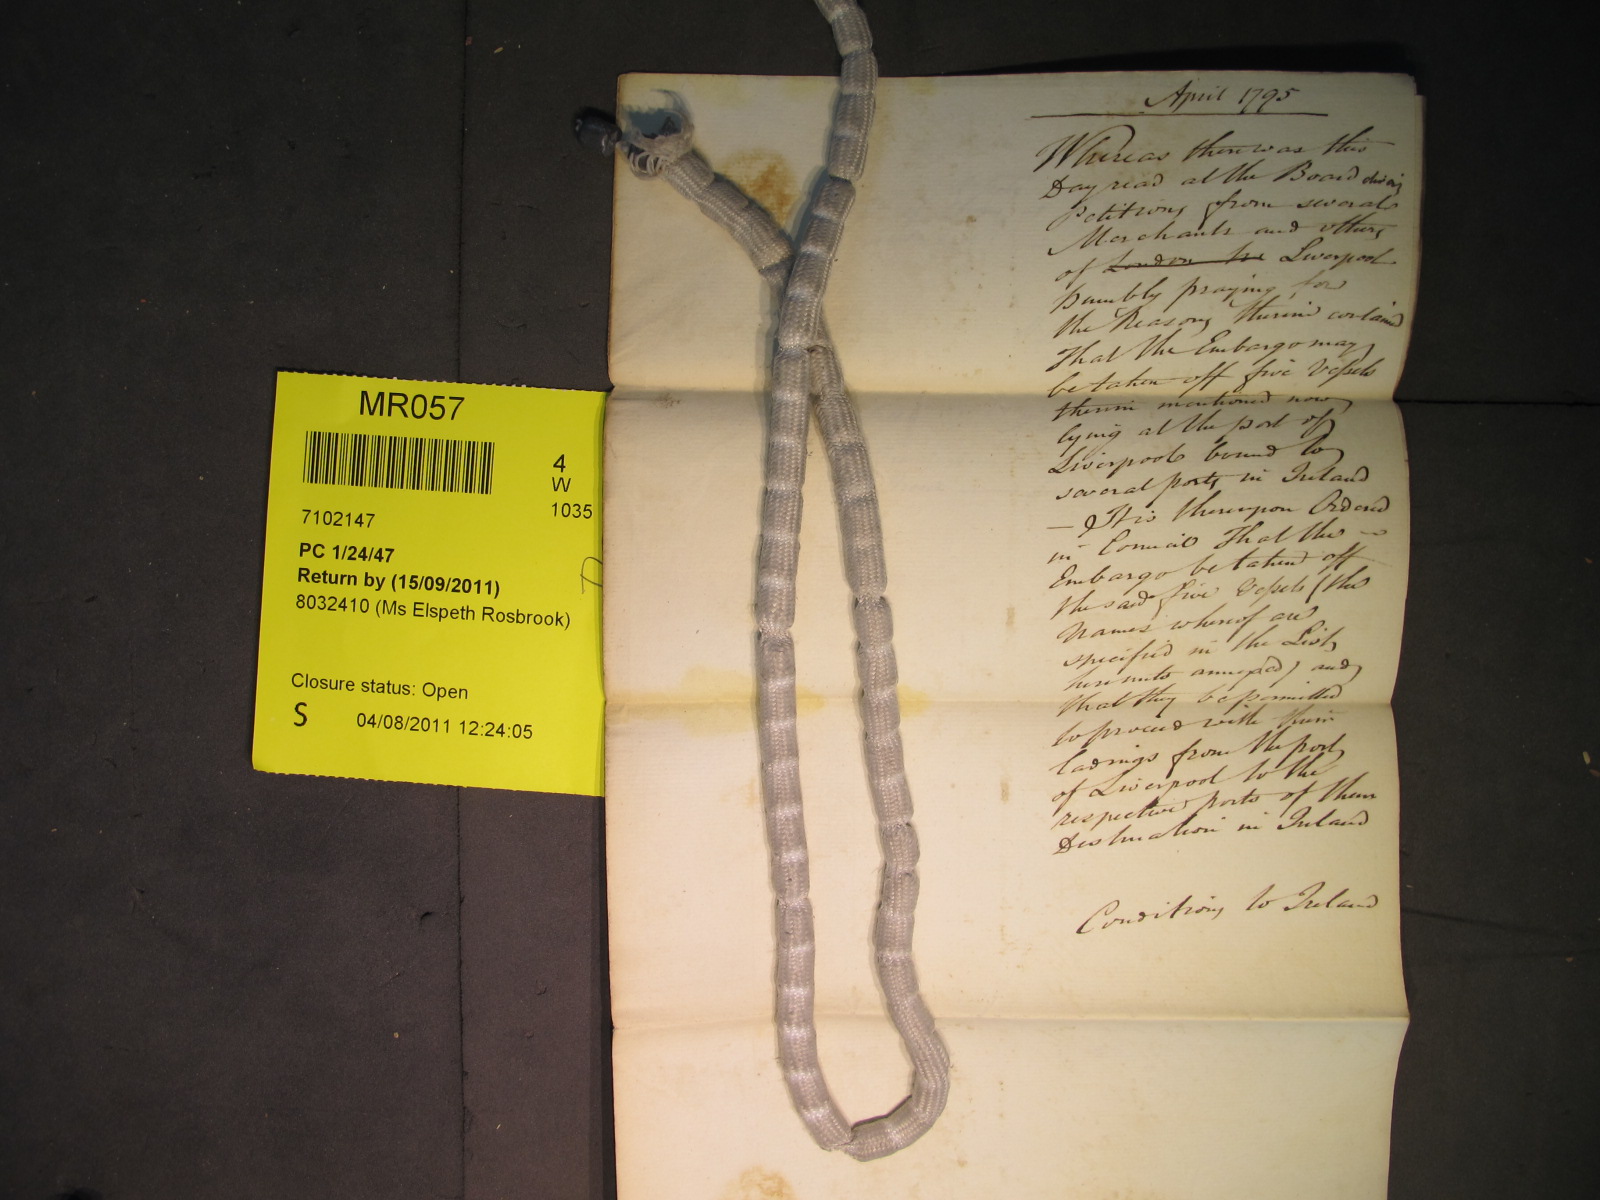 MR057
4
W
1035
7102147
PC 1/24/47
Return by (15/09/2011)
8032410 (Ms Elspeth Rosbrook)
Closure status: Open
S 04/08/2011 12:24:05
April 1795
Whereas there was this
Day read at the Board
Petitions from several
Merchants and others
of London Liverpool
humbly praying for
the Reasons therein contained
That the Embargo may
be taken off five Vessels
therein mentioned now
lying at the port of
Liverpool bound to
several ports in Ireland
— It is thereupon Ordered
in Council That the —
Embargo be taken off
the said five Vessels (the
Names whereof are
specified in the List
hereunto annexed) and
that they be permitted
to proceed with their
ladings from the port
of Liverpool to the
respective ports of their
Destination in Ireland
Conditions to Ireland